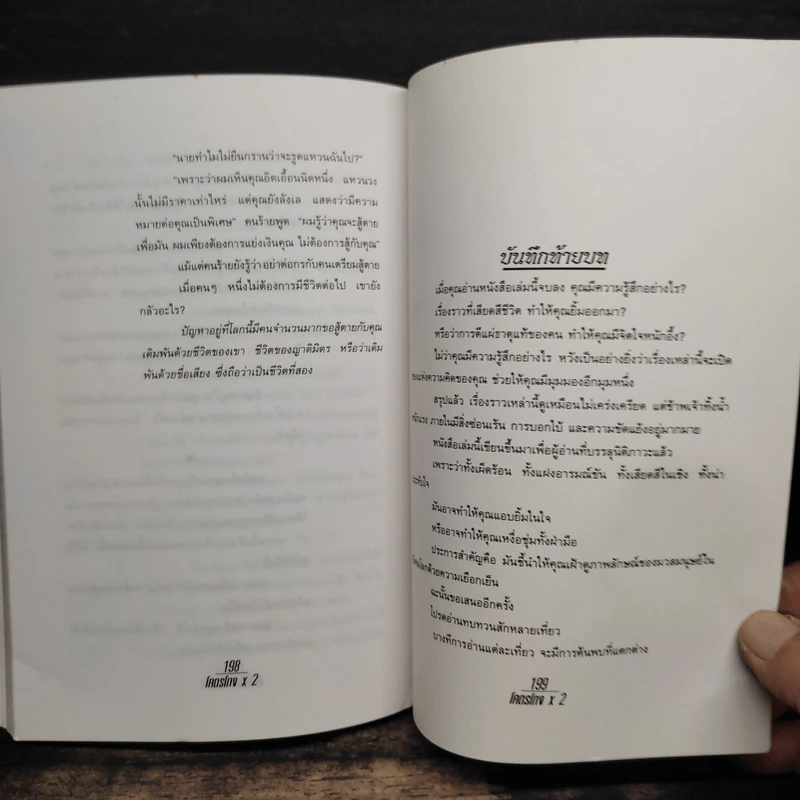 "นายทำไมไม่ยืนกรานว่าจะรูดแหวนฉันไป?"
"เพราะว่าผมเห็นคุณอิดเอื้อนนิดหนึ่ง แหวนวง
นั้นไม่มีราคาเท่าไหร่ แต่คุณยังลังเล แสดงว่ามีความ
หมายต่อคุณเป็นพิเศษ" คนร้ายพูด "ผมรู้ว่าคุณจะสู้ตาย
เพื่อมัน ผมเพียงต้องการแย่งเงินคุณ ไม่ต้องการสู้กับคุณ"
แม้แต่คนร้ายยังรู้ว่าอย่าต่อกรกับคนเตรียมสู้ตาย
เมื่อคนๆ หนึ่งไม่ต้องการมีชีวิตต่อไป เขายัง
กลัวอะไร?
ปัญหาอยู่ที่โลกนี้มีคนจำนวนมากขอสู้ตายกับคุณ
เดิมพันด้วยชีวิตของเขา ชีวิตของญาติมิตร หรือว่าเดิม
พันด้วยชื่อเสียง ซึ่งถือว่าเป็นชีวิตที่สอง
198
โคตรโกง x 2
บันทึกท้ายบท
เมื่อคุณอ่านหนังสือเล่มนี้จบลง คุณมีความรู้สึกอย่างไร?
เรื่องราวที่เสียดสีชีวิต ทำให้คุณยิ้มออกมา?
หรือว่าการตีแผ่ธาตุแท้ของคน ทำให้คุณมีจิตใจหนักอึ้ง?
ไม่ว่าคุณมีความรู้สึกอย่างไร หวังเป็นอย่างยิ่งว่าเรื่องเหล่านี้จะเปิด
แห่งความคิดของคุณ ช่วยให้คุณมีมุมมองอีกมุมหนึ่ง
สรุปแล้ว เรื่องราวเหล่านี้ดูเหมือนไม่เคร่งเครียด แต่ข้าพเจ้าทิ้งน้ำ
หนักแรง ภายในมีสิ่งซ่อนเร้น การบอกใบ้ และความขัดแย้งอยู่มากมาย
หนังสือเล่มนี้เขียนขึ้นมาเพื่อผู้อ่านที่บรรลุนิติภาวะแล้ว
เพราะว่าทั้งเผ็ดร้อน ทั้งแฝงอารมณ์ขัน ทั้งเสียดสีในเชิง ทั้งน่า
มันอาจทำให้คุณแอบยิ้มในใจ
หรืออาจทำให้คุณเหงื่อชุ่มทั้งฝ่ามือ
ประการสำคัญคือ มันชี้นำให้คุณเฝ้าดูภาพลักษณ์ของมวลมนุษย์ใน
โลกด้วยความเยือกเย็น
ฉะนั้นขอเสนออีกครั้ง
โปรดอ่านทบทวนสักหลายเที่ยว
บางทีการอ่านแต่ละเที่ยว จะมีการค้นพบที่แตกต่าง
199
โคตรโกง x 2